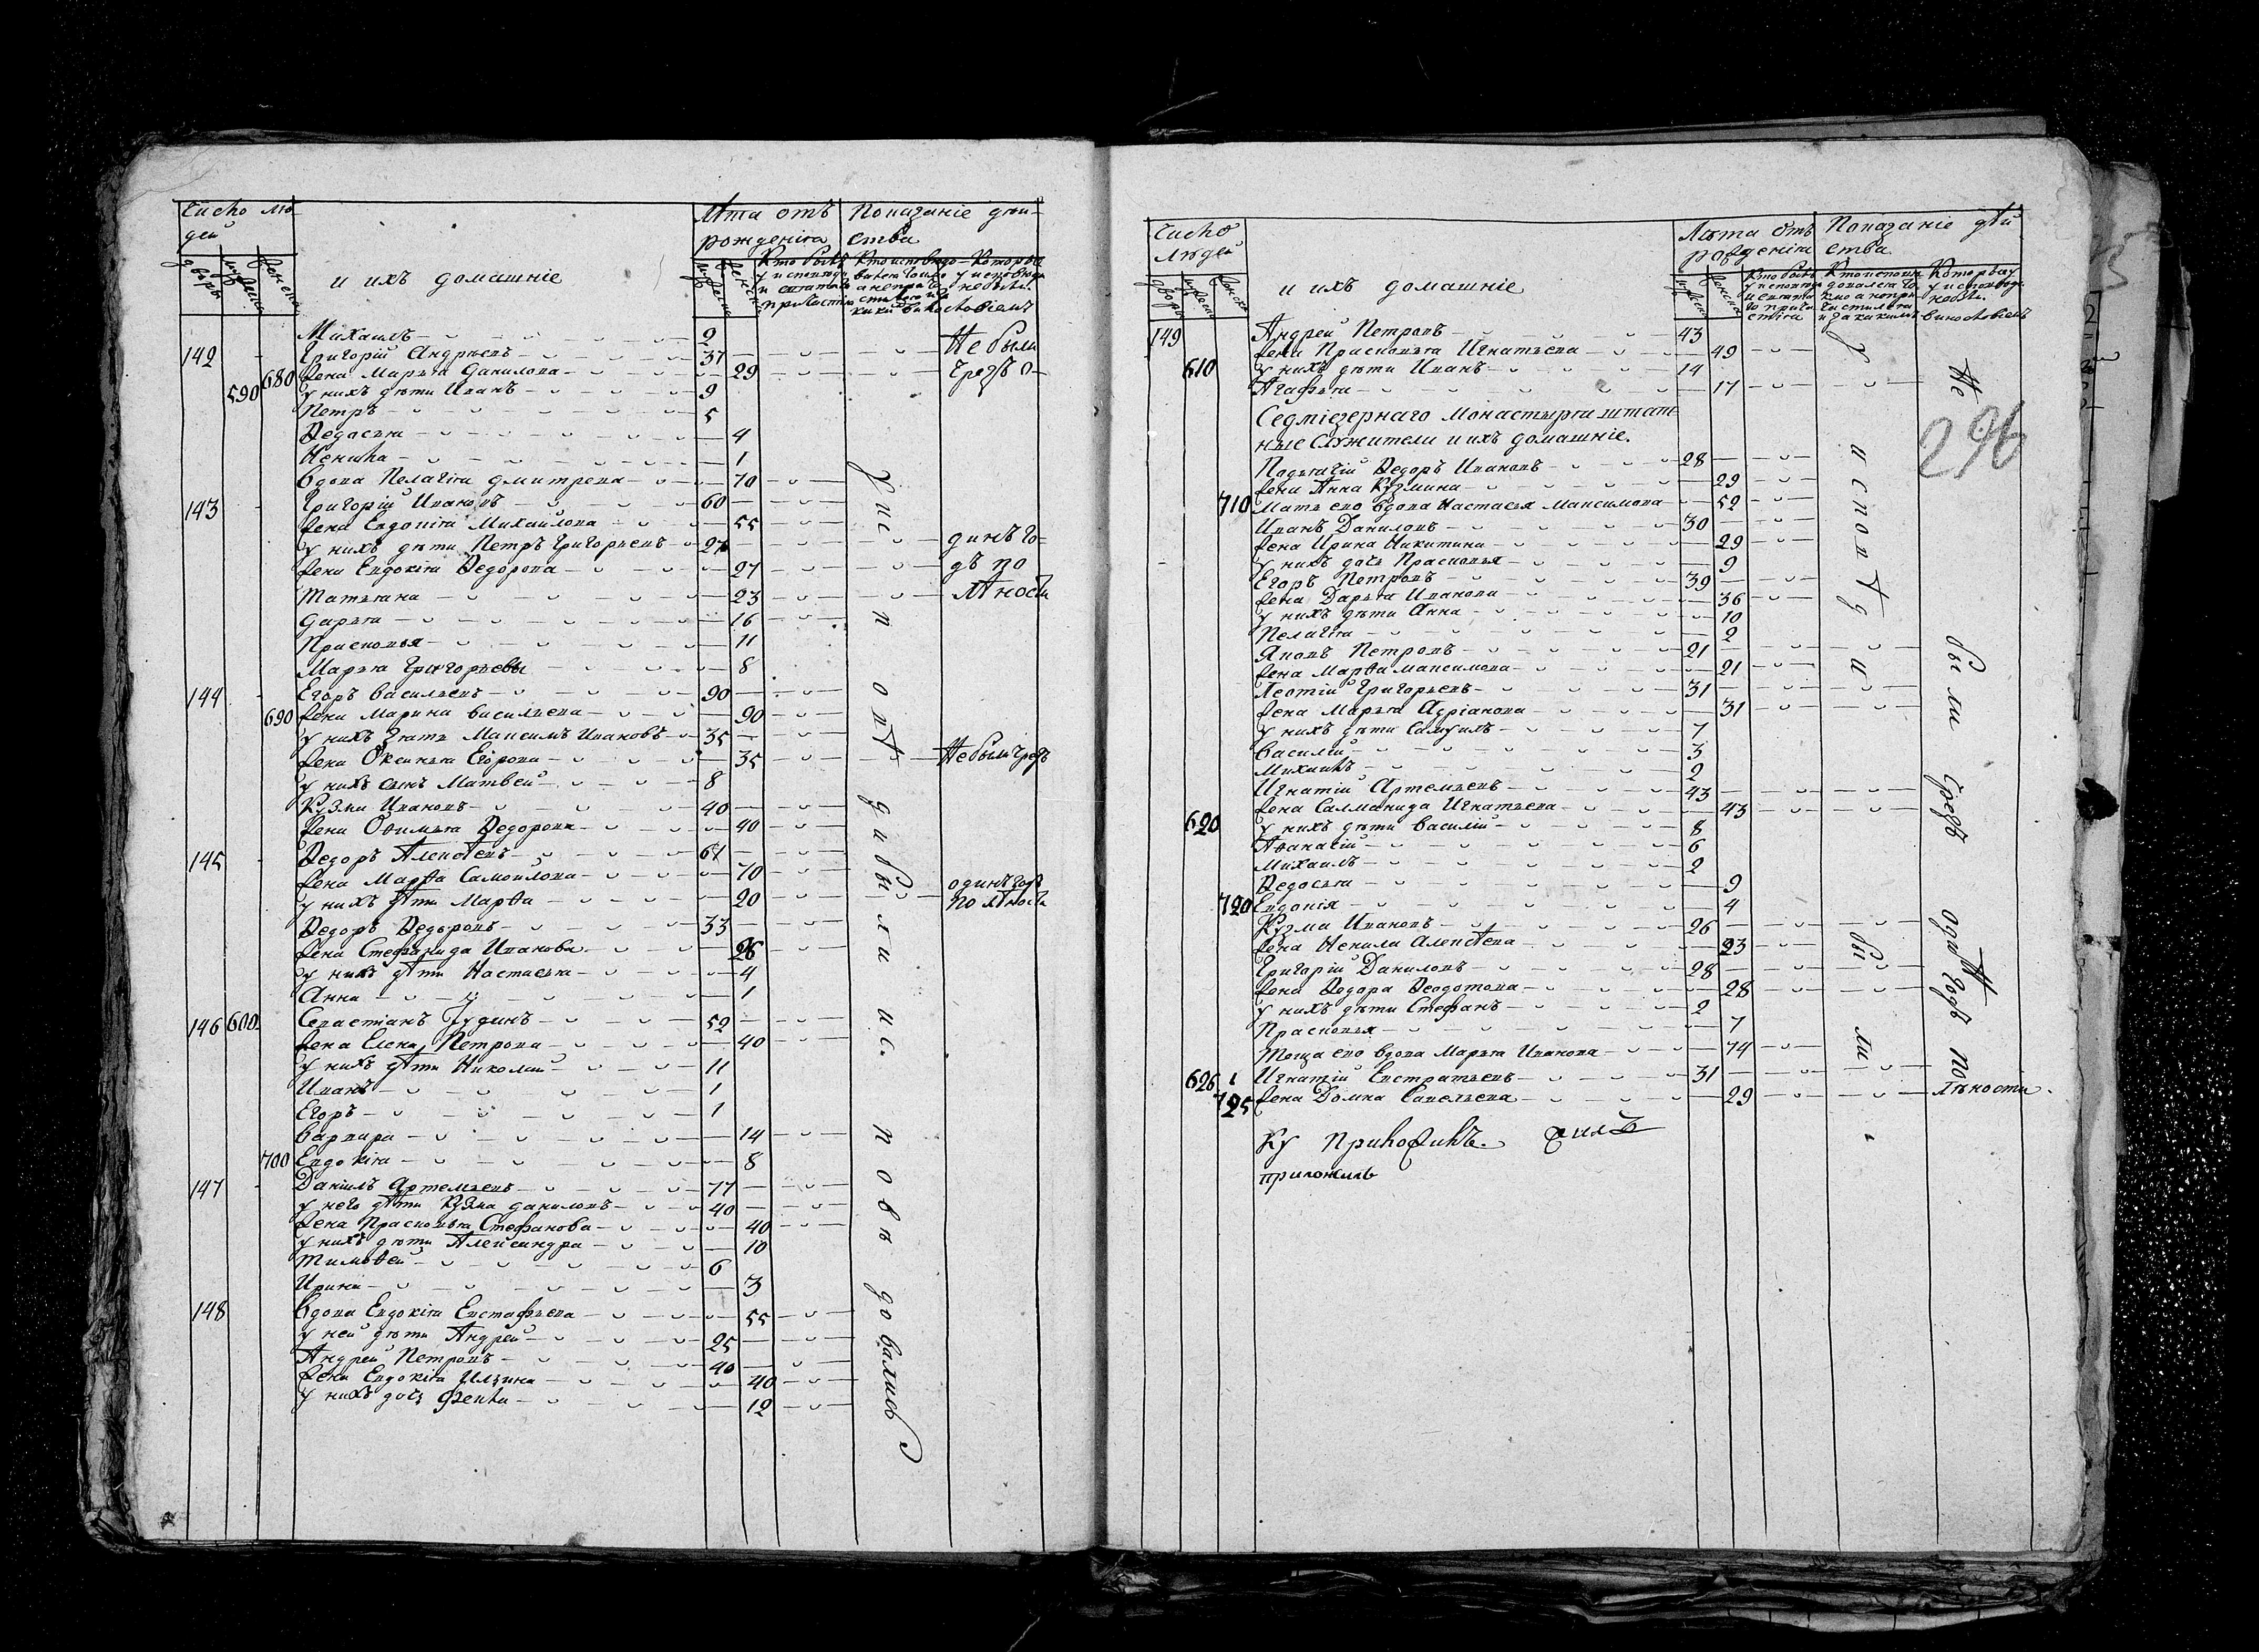 Число лю-
дей
и ихъ домашніе
Лѣта отъ
рожденія
Показаніе дѣй-
ства
Михаилъ 2 Не были
142 Григорій Андрѣевъ 37
680 жена Марья Данилова 29 Чрезъ о-
590 у нихъ дѣти Иванъ 9
Петръ 5
Ѳедосья 4
Ненила 1
вдова Пелагія Дмитрева 70
143 Григорій Ивановъ 60
жена Евдокія Михайлова 55
у нихъ дѣти Петръ Григорьевъ 27 динъ го-
жена Евдокія Ѳедорова 27 дъ по
Татьяна 23 лѣност
Дарья 16
Прасковья 11
Марья Григорьевы 8
144 Егоръ Васильевъ 90
690 жена Марина Васильева 90
у нихъ зять Максимъ Ивановъ 35
жена Оксинья Егорова 35 Не были чрезъ
у нихъ сынъ Матвей 8
Кузма Ивановъ 40
жена Офимья Ѳедорова 40
145 Ѳедоръ Алексѣевъ 67
жена Марѳа Самойлова 70
у нихъ дѣти Марѳа 20 одинъ годъ
по лѣности
Ѳедоръ Ѳедоровъ 33
жена Стефанида Иванова 26
у нихъ дѣти Настасья 4
Анна 1
146 600 Севастіанъ Іудинъ 52
жена Елена Петрова 40
у нихъ дѣти Николай 11
Иванъ 1
Егоръ 1
Варвара 14
700 Евдокія 8
147 Даніилъ Артемьевъ 77
у него дѣти Кузма Даниловъ 40
жена Прасковья Стефанова 40
у нихъ дѣти Александра 10
Тимоѳей 6
Ирина 3
148 вдова Евдокія Евстафьева 55
у ней дѣти Андрей 25
Андрей Петровъ 40
жена Евдокія Ильина 40
у нихъ дочь Фекла 12
У исповѣди были исповѣдовались
Число
людей
и ихъ домашніе
Лѣта отъ
рожденія
Показаніе дѣй
ства
149 Андрей Петровъ 43
жена Прасковья Игнатьева 49
610 у нихъ дѣти Иванъ 14
Агафья 17
Седміезернаго монастыря штат
ные служители и ихъ домашніе.
296
Ѳедоръ Ивановъ 28
жена Анна Кузмина 29
710 Мать ево вдова Настасья Максимова 52
Иванъ Даниловъ 30
жена Ирина Никитина 29
у нихъ дочь Прасковья 9
Егоръ Петровъ 39
жена Дарья Иванова 36
у нихъ дѣти Анна 10
Пелагія 2
Яковъ Петровъ 21
жена Марѳа Максимова 21
Леотій Григорьевъ 31
жена Марья Адріанова 31
у нихъ дѣти Самуилъ 7
Василій 3
Михаилъ 2
Игнатій Артемьевъ 43
жена Салманида Игнатьева 43
620 у нихъ дѣти Василій 8
Аѳанасій 6
Михаилъ 2
Ѳедосья 9
720 Евдокія 4
Кузма Ивановъ 26
жена Ненила Алексѣева 23
Григорій Даниловъ 28
жена Ѳедора Ѳеодотова 28
у нихъ дѣти Стефанъ 2
Прасковья 7
Теща ево вдова Марья Иванова 74
626 Игнатій Евстратьевъ 31
725 жена Домна Савельева 29
У исповѣди были
Не были чрезъ одинъ годъ по
лѣности
приложилъ